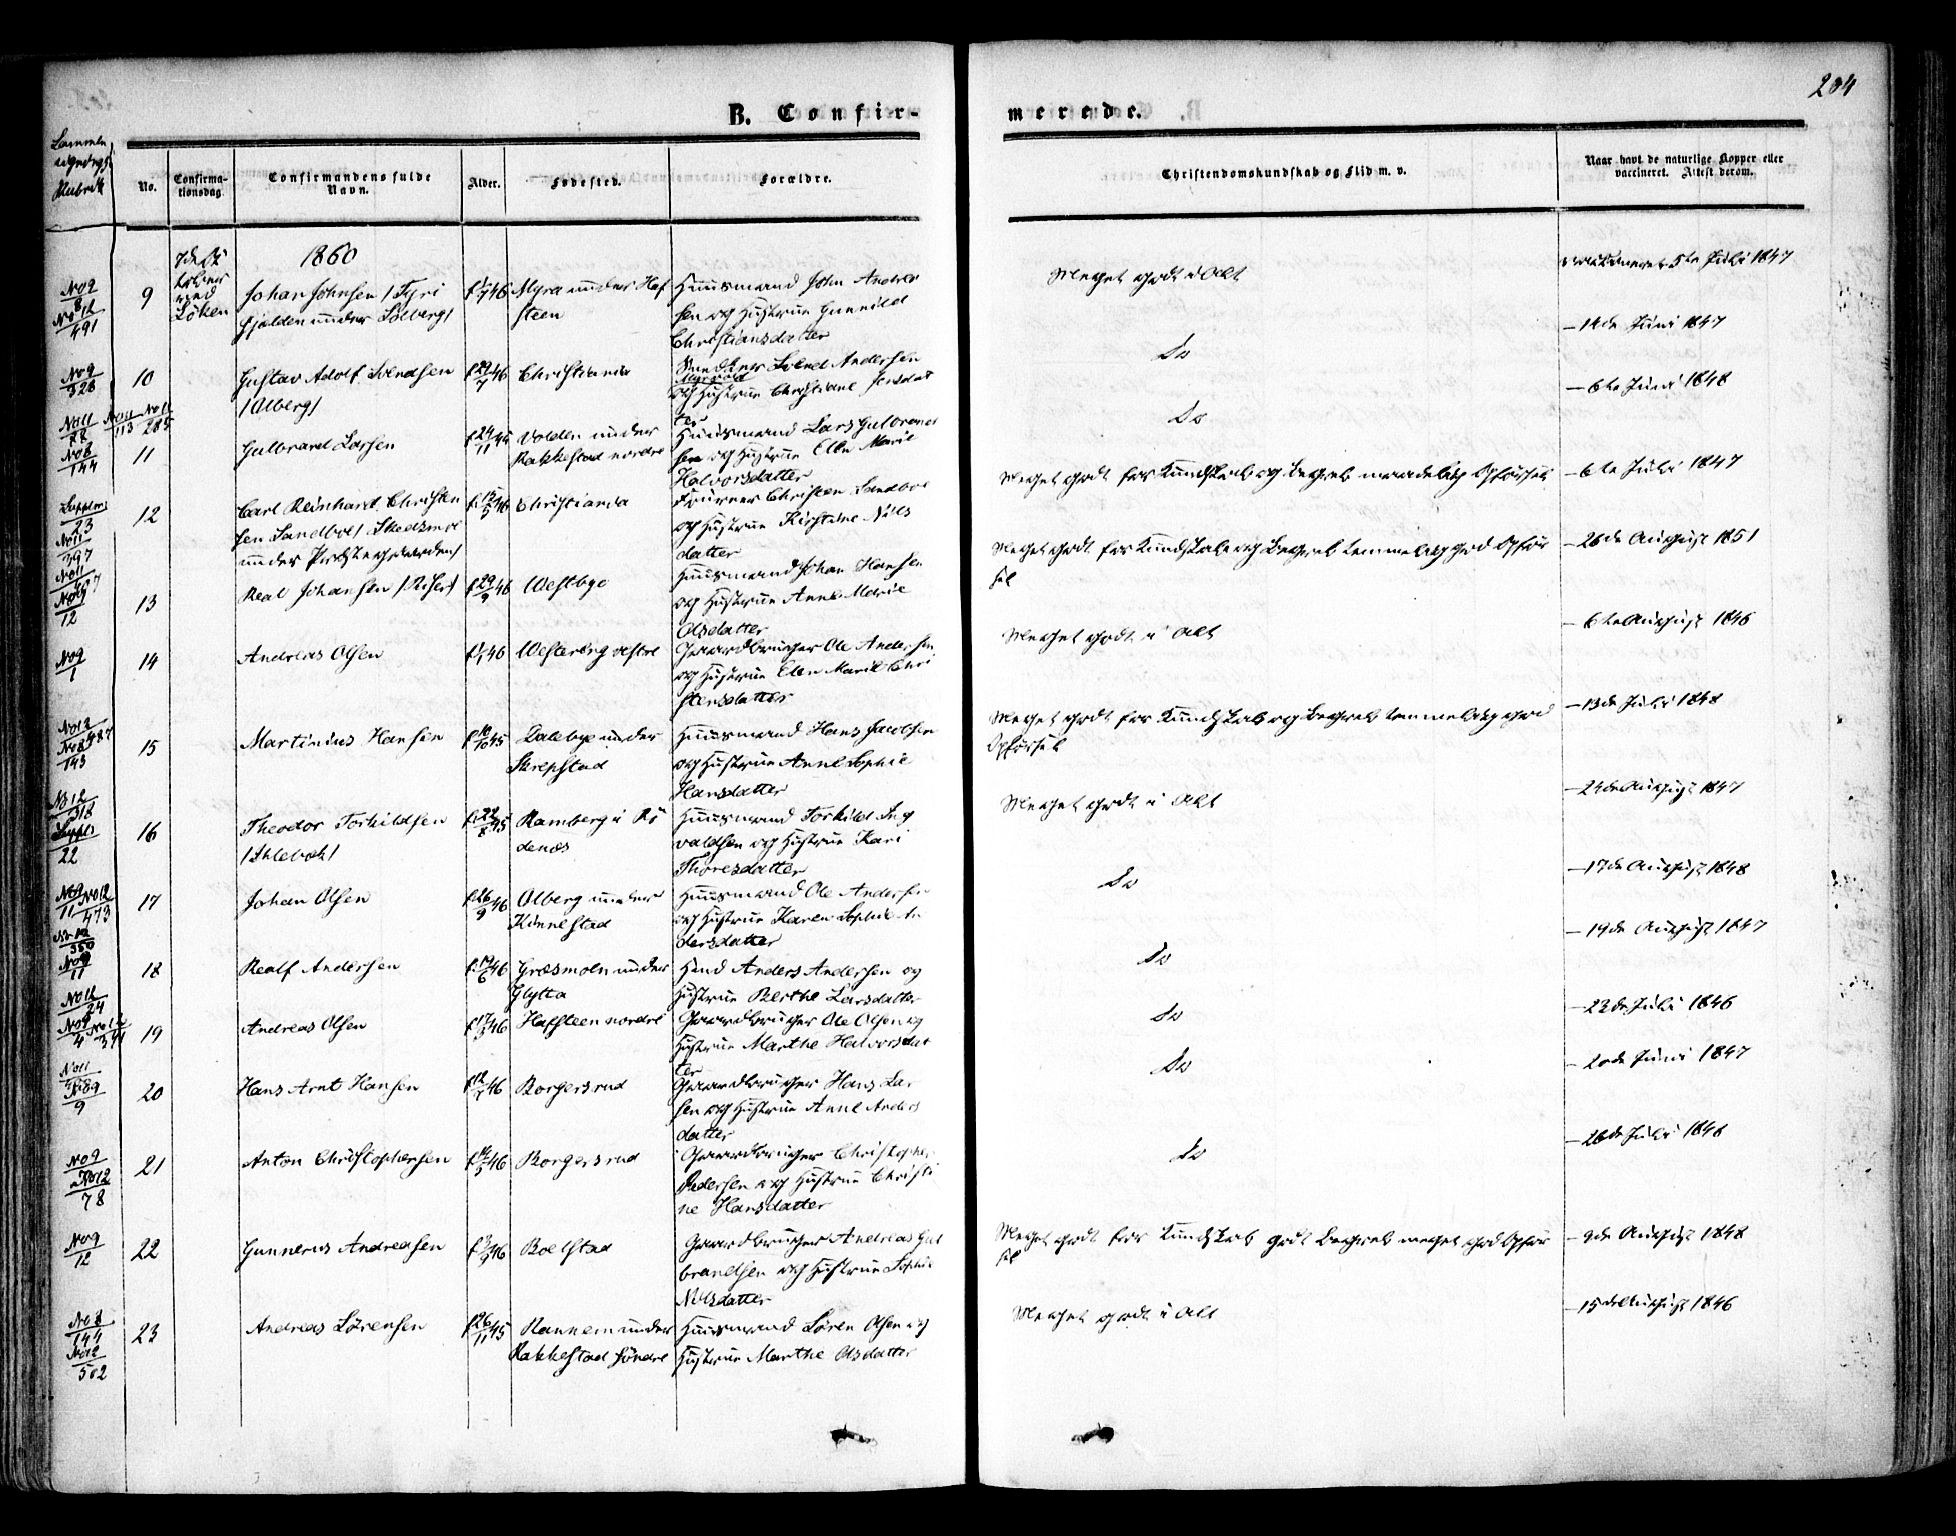 204
B. Confir-
merede.
No.
Confirma-
tionsdag
Confirmandens fulde
Navn.
Alder.
Fødested.
Forældre.
Christendomskundskab og Flid m. v.
Naar havt de naturlige Kopper eller
vaccineret. Attest derom.
1860
No 9
8
9
Johan Johnsen / Fyri
fjølden under Solberg/
Myra under Haf
steen
Huusmand John Andrea
sen og Hustrue Gunnild
Christiansdatter
Meget godt i Alt
vaccineret 5te Juli 1847
491
No 9
328
10
Gustav Adolf Svendsen
/Olberg/
f 29/7 46
Christiania
Svend Andersen
og Hustrue Christiane Jensdat
ter
Do
- 14de Juni 1847
No 11
78
No 11
113
No 11
285
No 8
144
11
Gulbrand Larsen
f 24/11 45
Volden under
Rakkestad nordre
Huusmand Lars Gulbrand
sen og Hustrue Ellen Marie
Halvorsdatter
Do
- 6te Juni 1848
23
No 11
397
12
Carl Reinhard Christen
sen Sandbol/ Skedsmoe
under Præstegaarden/
Christiania
Christen Sandbol
og Hustrue Kirstine Niels
datter
Meget godt for Kundskab og Begreb maadelig Opførsel
- 6te Juli 1847
No 11
12
13
Real Johansen /Riser/
f 29/9 46
Westbye
Huusmand Johan Hansen
og Hustrue Anne Marie
Olsdatter
Meget godt for Kundskab og Begreb temmelig god Opfør
sel
- 26de August 1851
No 9
1
14
Andreas Olsen
f 1/1 46
Westereng vestre
Gaardbruger Ole Andersen
og Hustrue Ellen Marie Chri
stensdatter
Meget godt i Alt
- 6te August 1846
No 12
487
No 8
143
15
Martinius Hansen
f 10/10 45
Dalebye under
Skrepstad
Huusmand Hans Jacobsen
og Hustrue Anne Sophie
Hansdatter
Meget godt for Kundskab og Begreb temmelig god
Opførsel
- 13de Juli 1848
No 12
318
22
16
Theodor Torkildsen
/Shlebæk/
f 22/8 45
Ramberg i Rø
denæs
Huusmand Torkild Ing
valdsen og Hustrue Kari
Thoresdatter
Meget godt i Alt
- 24de August 1847
No 9
11
No 12
473
17
Johan Olsen
f 26/9 46
Olberg under
Kinnestad
Huusmand Ole Andersen
og Hustrue Karen Sophie An
dersdatter
Do
- 17de August 1848
No 12
350
No 9
11
18
Realf Andersen
f 19/6 46
Græsmoen under
Glytta
Anders Andersen og
Hustrue Berthe Larsdatter
Do
- 19de August 1847
No 12
24
No 9
4
No 12
341
19
Andreas Olsen
f 17/3 46
Hafsteen nordre
Gaardbruger Ole Olsen og
Hustrue Marthe Halvorsdat
ter
Do
- 22de Juli 1846
No 11
9
20
Hans Arnt Hansen
Borgersrud
Gaardbruger Hans Lar
sen og Hustrue Anne Anders
datter
Do
- 20de Juni 1847
No 9
No 12
78
21
Anton Christophersen
Borgersrud
Gaardbruger Christopher
Pedersen og Hustrue Christi
ne Hansdatter
Do
- 28de Juli 1848
No 9
12
22
Gunnerus Andreasen
Boelstad
Gaardbruger Andreas Gul
brandsen og Hustrue Sophie
Nilsdatter
Meget godt for Kundskab godt Begreb meget god Opfør
sel
- 9de August 1848
No 8
144
No 12
502
23
Andreas Sørensen
f 26/11 45
Rannem under
Rakkestad søndre
Huusmand Søren Olsen og
Hustrue Marthe Olsdatter
Meget godt i Alt
- 15de August 1846